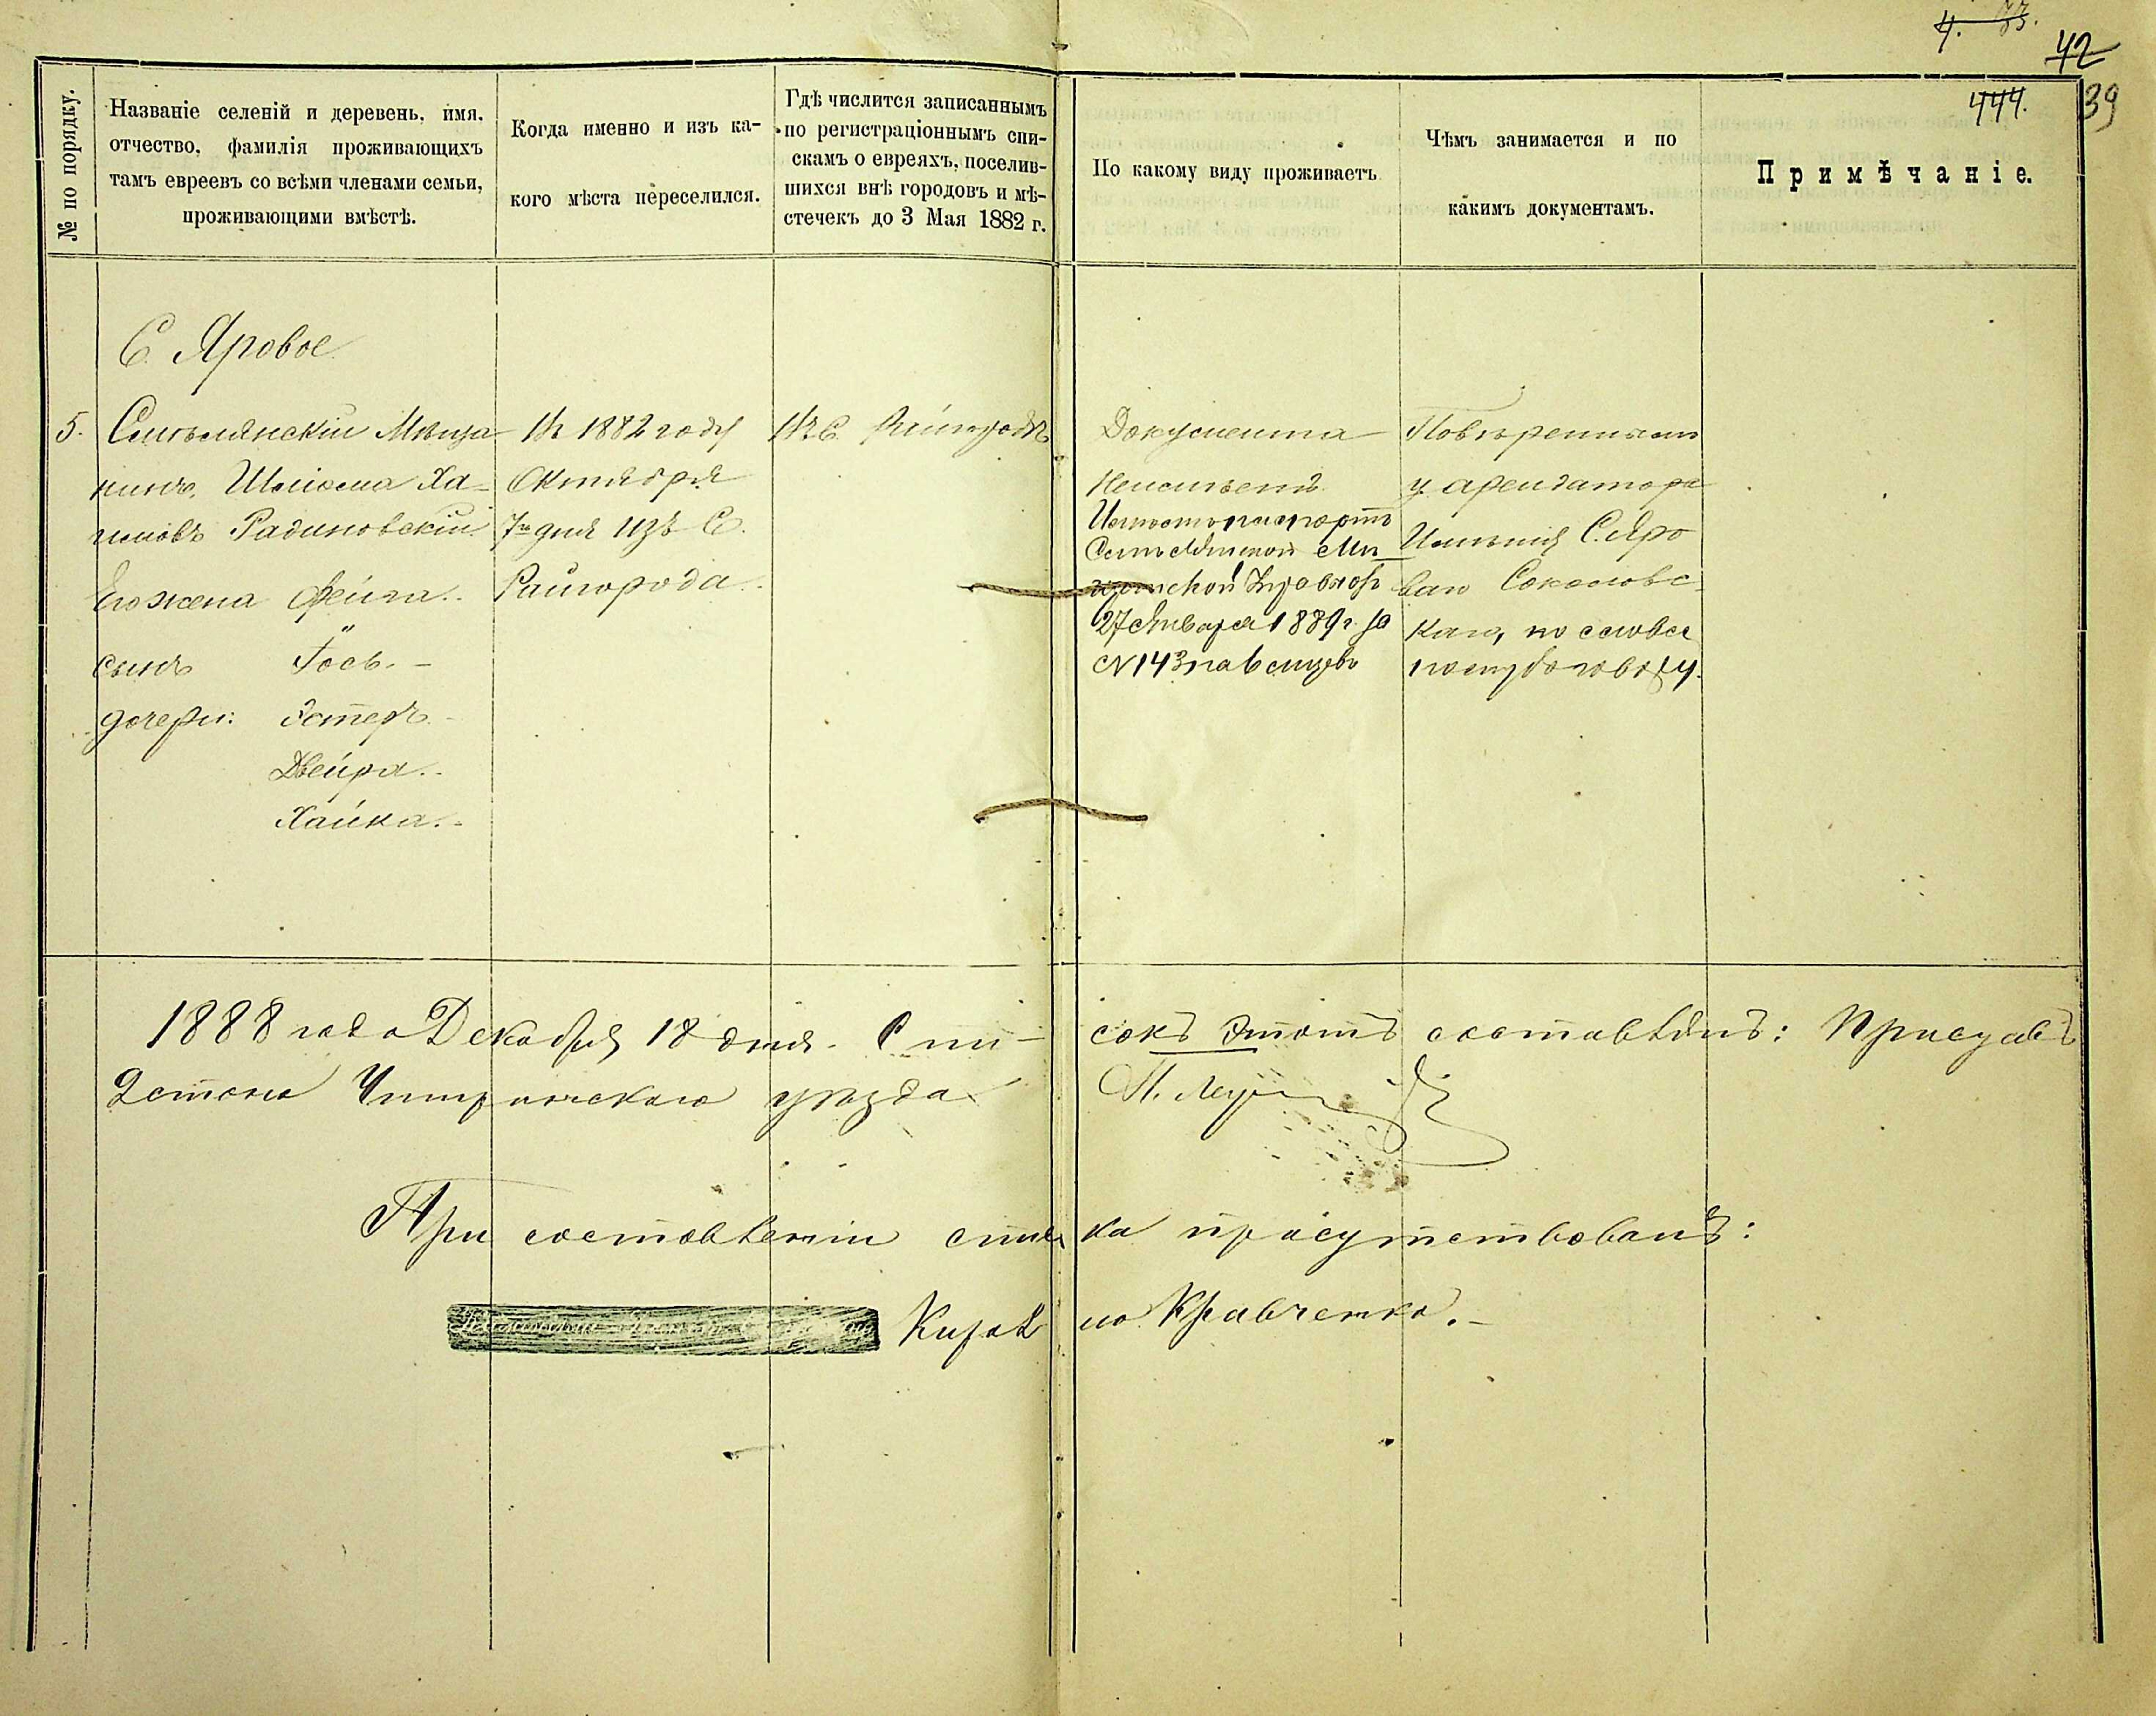 4. 33.
42
39
444.
№ по порядку.
Названіе селеній и деревень, имя,
отчество, фамилія проживающихъ
тамъ евреевъ со всѣми членами семьи,
проживающими вмѣстѣ.
Когда именно и изъ ка-
кого мѣста переселился.
Гдѣ числится записаннымъ
по регистраціоннымъ спи-
скамъ о евреяхъ, поселив-
шихся внѣ городовъ и мѣ-
стечекъ до 3 Мая 1882 г.
По какому виду проживаетъ
Чѣмъ занимается и по
какимъ документамъ.
Примѣчаніе.
С. Яровое
5. Смѣлянскій Мѣща-
нинъ, Шлиома Ха-
имовъ Радиновскій
Его жена Фейга..
сынъ Іось. -
дочери: Эстеръ -
Двейра..
Хайка.-
Въ 1882 году
Октября
7го дня изъ С.
Райгорода.
Въ С. Райгородѣ
Документа
Неимѣетъ
Имѣетъ паспортъ
Смѣлянской Мѣ
щанской Управы отъ
27 Января 1889 г. за
№ 143 на 6 мѣсцевъ
Повѣреннымъ
у арендатора
Имѣнія С. Яро
ваго Соколовс-
каго, по словес
ному договору.
1888 года Декабря 18 дня. Спи-
сокъ этотъ составленъ: Приставъ
2 стана Чигиринскаго уѣзда
При составленіи списка присутствовалъ:
Кирило Кравченко.-